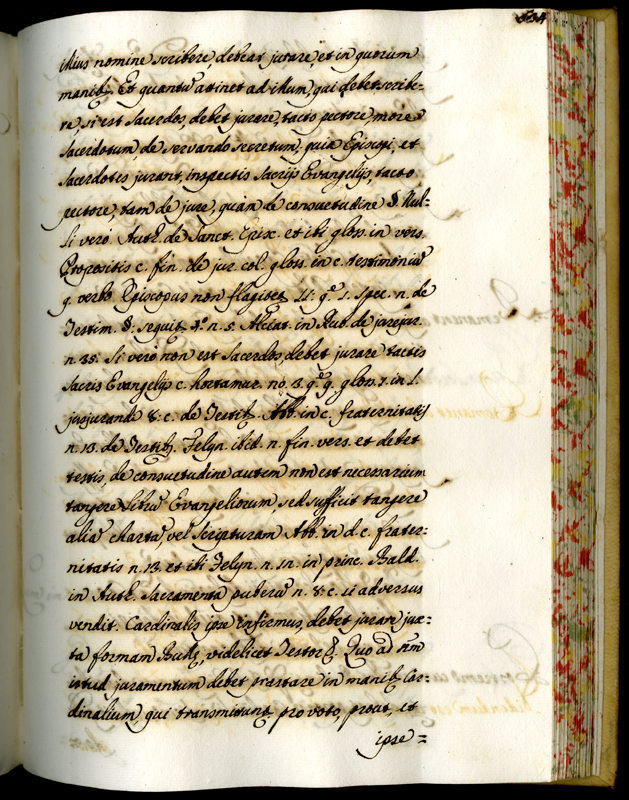 illius nomine scribere, debeat jurare, et in quorum
manib9. Et quantũ attinet ad illum, qui debet scribe-
re, si est Sacerdos, debet jurare, tacto pectore more
Sacerdotum, de servando secretum, quia Episcopi, et
Sacerdotes jurant, inspectis Sacris Evangelijs, tacto
pectore, tam de jure, quàm de consuetudine §. Nul-
li verò. Auth. de Sanct. Epix. et ibi gloss. in vers.
Propositis c. fin. de jur. col. gloss. in c. testimoniũ
q. verbo Episcopus non flagitet 11. q. 1. Spec. n. de
Testim. §. sequit. n. 5. Alciat. in Rub. de jurejur.
n. 35. Si verò non est Sacerdos, debet jurare tactis
Sacris Evangelijs c. hortamur. 3. q. 9. glos. 1. in l.
jurisjurandi 8. c. de Testib9 Abb. in c. fraternitatis
n. 13. de Testib9. Felyn. ibid. n. fin. vers. et debet
testis, de consuetudine autem non est necessarium
tangere Librũ Evangeliorum, sed sufficit tangere
aliã chartã, vel Scripturam Abb. in d. c. frater-
nitatis n. 13 et ibi Felyn. n. in princ. Bald.
in Auth. Sacramenta puberũ n. 8. c. si adversus
vendit. Cardinalis ipse infirmus, debet jurare jux-
ta formam, videlicet Testor &. Quo ad
istud juramentum debet præstare in manib9 Car-
dinalium, qui transmittunt pro voto, prout, et
ipse =